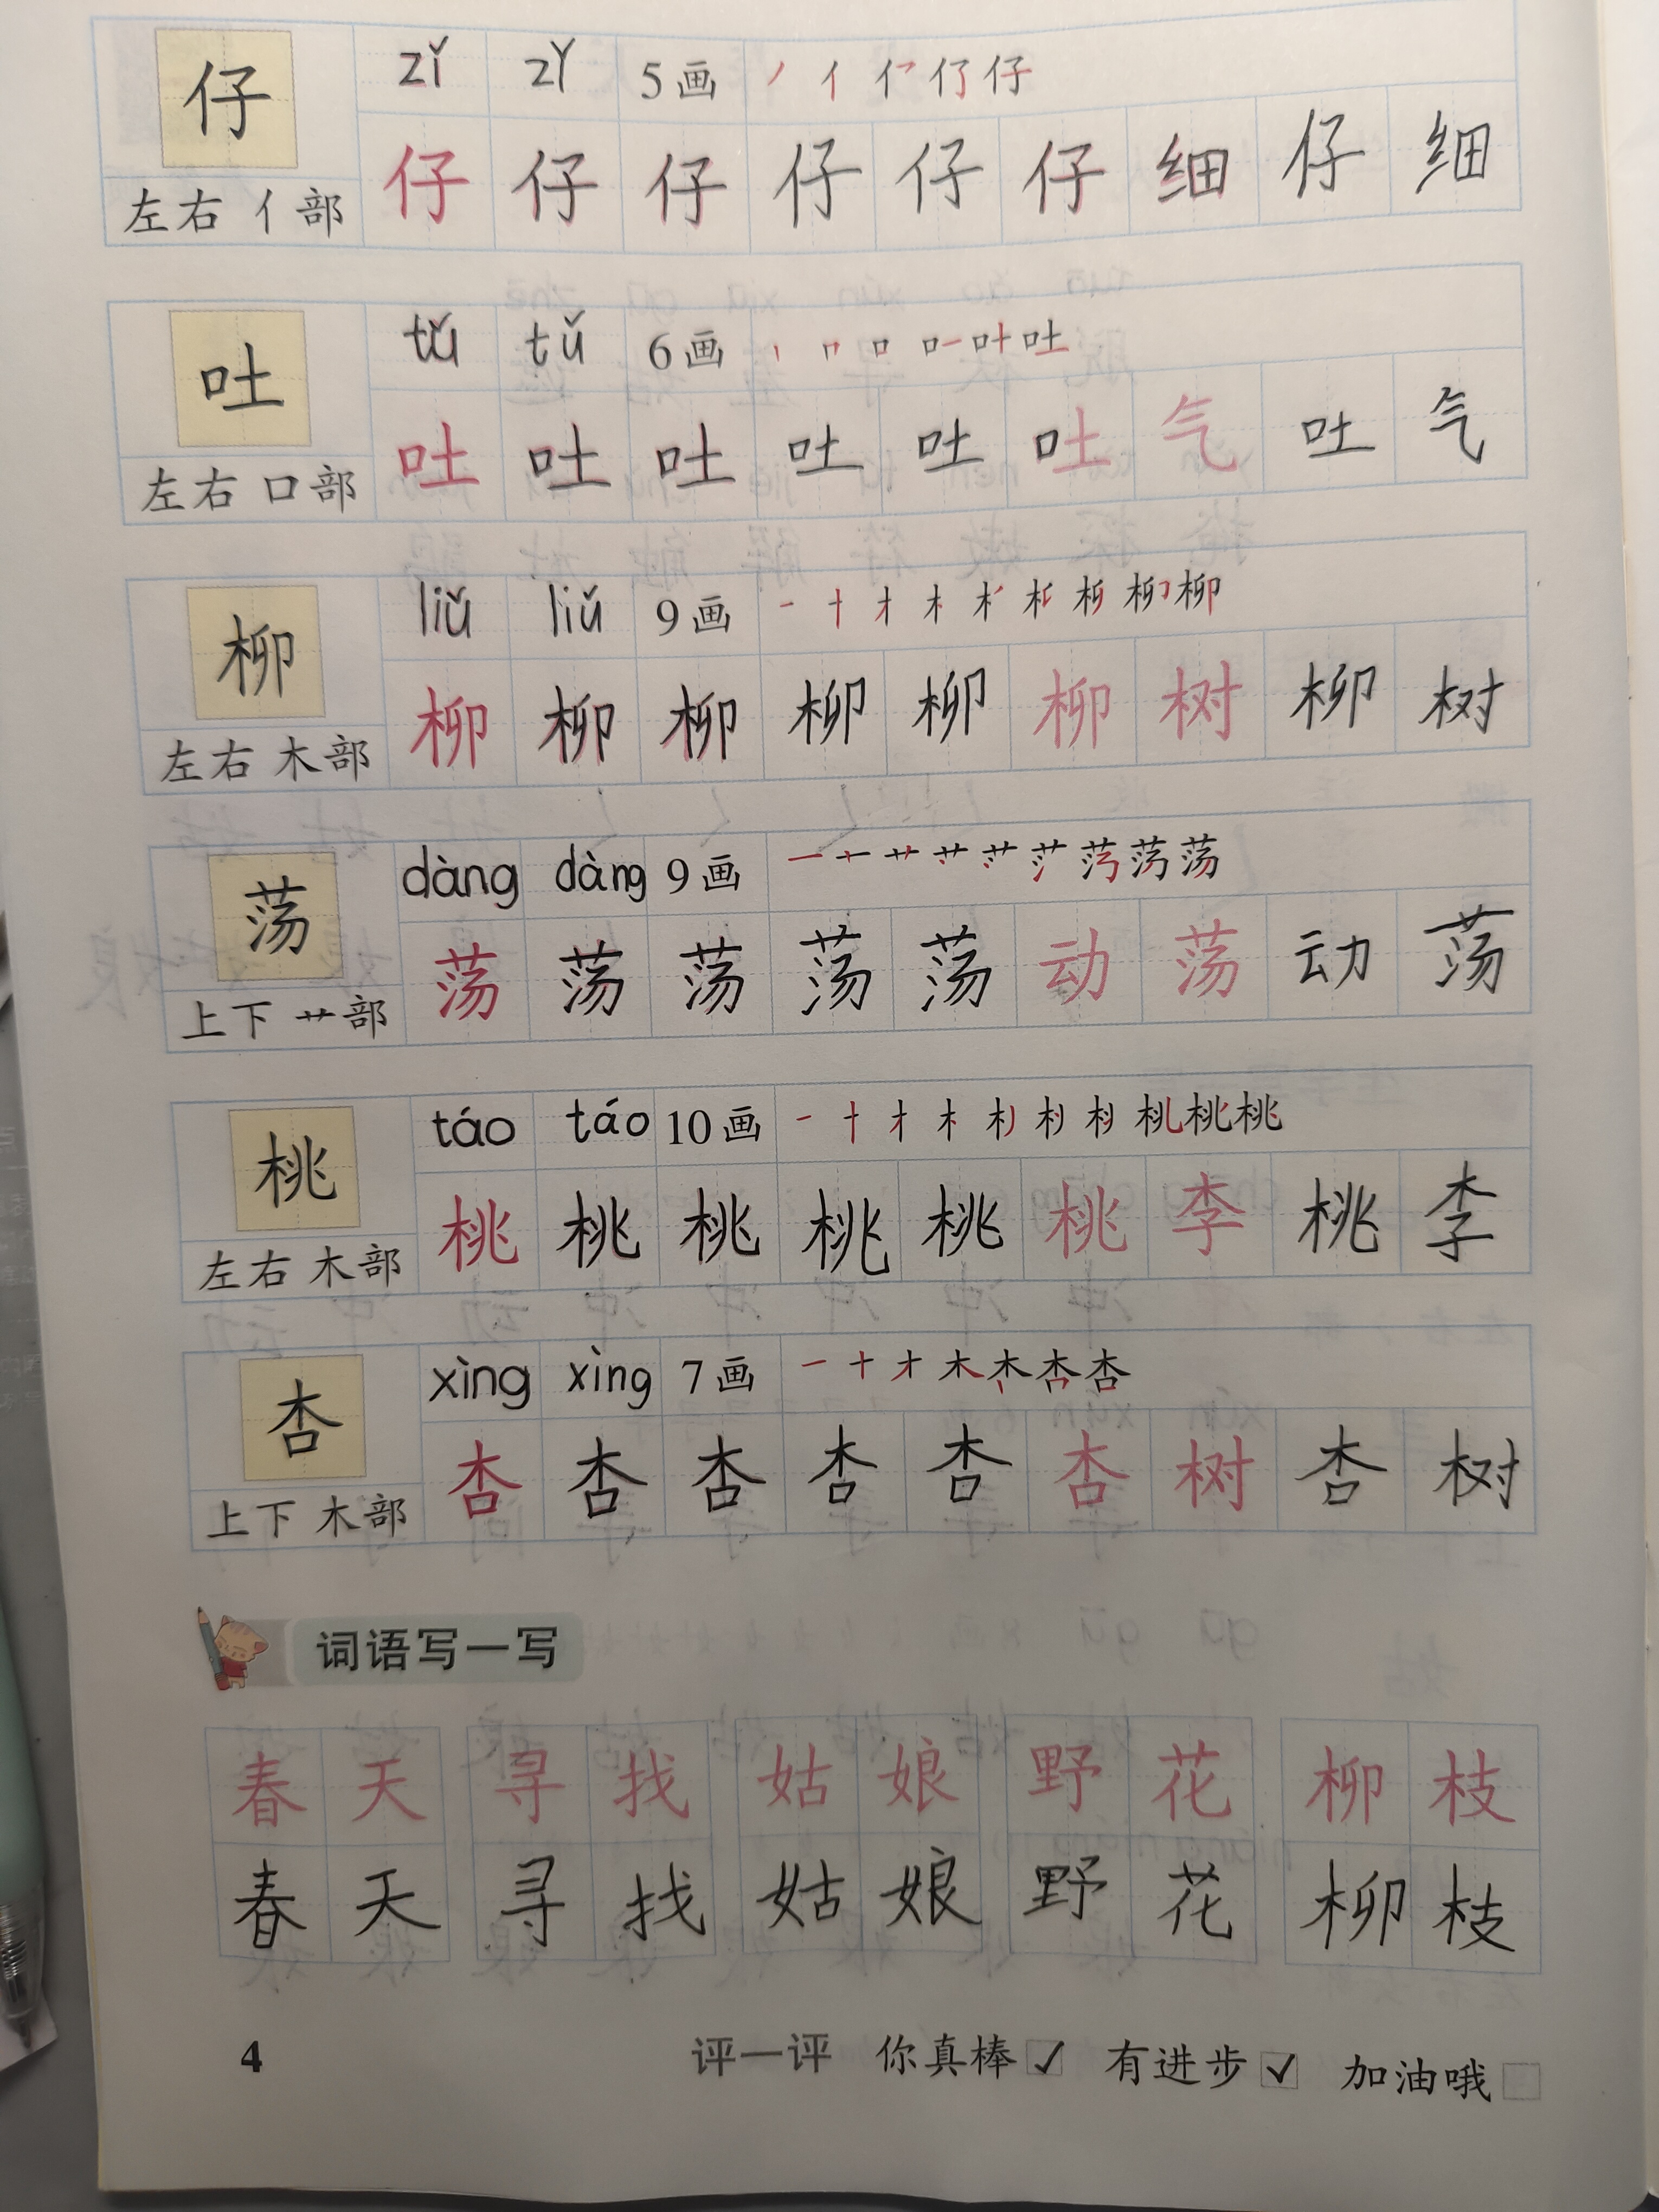 zǐ zǐ 5画 丿 亻 仔
仔
仔 仔 仔 仔 仔 仔 细 仔 细
左右 亻部
tǔ tǔ 6画 吐
吐
吐 吐 吐 吐 吐 吐 气 吐 气
左右 口部
liǔ liǔ 9画 一 十 才 木 柳
柳
柳 柳 柳 柳 柳 柳 树 柳 树
左右 木部
dàng dàng 9画 一 艹 荡 荡 荡
荡
荡 荡 荡 荡 荡 动 荡 动 荡
上下 艹部
táo táo 10画 一 十 才 木 桃 桃
桃
桃 桃 桃 桃 桃 桃 李 桃 李
左右 木部
xìng xìng 7画 一 十 才 木 木 杏 杏
杏
杏 杏 杏 杏 杏 杏 树 杏 树
上下 木部
词语写一写
春天 寻找 姑娘 野花 柳枝
春天 寻找 姑娘 野花 柳枝
4 评一评 你真棒 ✓ 有进步 ✓ 加油哦